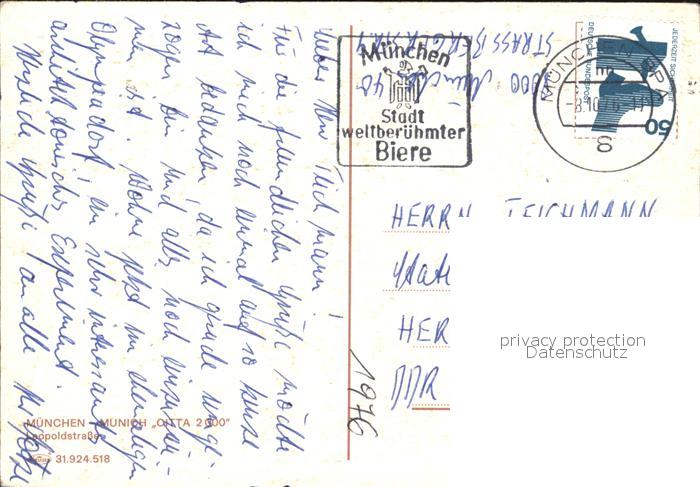 Lieber Herr Teichmann!
Für die freundlichen Grüße möchte
ich mich noch einmal auf so kurze
Art bedanken, da ich gerade umge-
zogen bin und alles noch
ist. Wohne jetzt im ehemaligen
Olympiadorf, ein sehr interessantes
architektonisches Experiment.
Herzliche Grüße an alle
"MÜNCHEN - MUNICH „CITTA 2000"
Leopoldstraße
31.924.518
1976
München
Stadt
weltberühmter
Biere
STRASSBERGERSTR.
8000 München 40
MÜNCHEN
-8.10.76-17
8
DEUTSCHE BUNDESPOST
JEDERZEIT SICHERHEIT
50
HERRN TEICHMANN
HER
DDR
privacy protection
Datenschutz